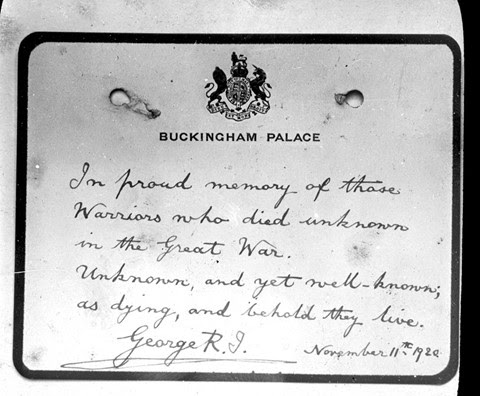 BUCKINGHAM PALACE
In proud memory of those
Warriors who died unknown
in the Great War.
Unknown, and yet well-known;
as dying, and behold they live.
George R.I.
November 11th 1920